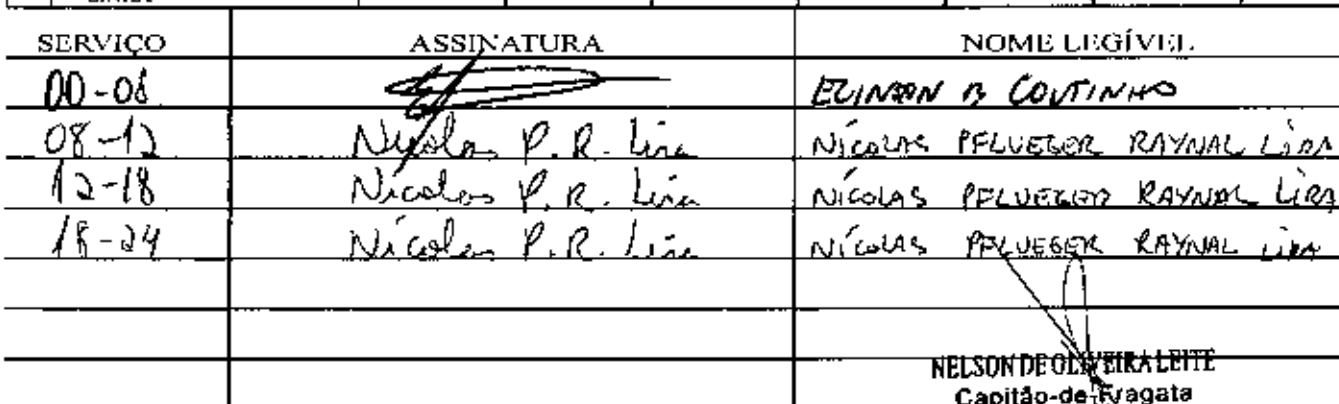 SERVIÇO ASSINATURA NOME LEGÍVEL
00-08 B COUTINHO
08-12 Nícolas P. R. Lira NÍCOLAS PFLUEGER RAYNAL LIRA
12-18 Nícolas P. R. Lira NÍCOLAS PFLUEGER RAYNAL LIRA
18-24 Nícolas P. R. Lira NÍCOLAS PFLUEGER RAYNAL LIRA
NELSON DE OLIVEIRA LEITE
Capitão-de-Fragata